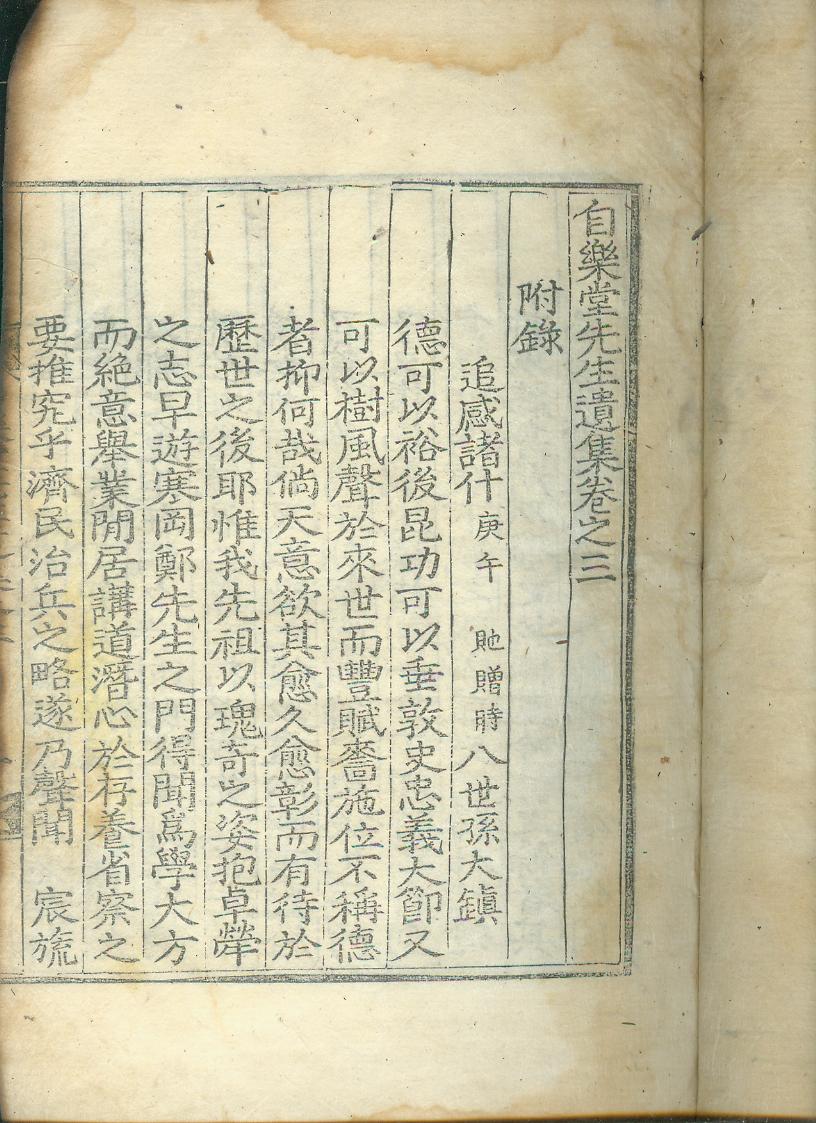 自樂堂先生遺集卷之三
附錄
追感諸什 庚午 貤贈時 八世孫大鎭
德可以裕後昆功可以垂敦史忠義大節又
可以樹風聲於來世而豐賦嗇施位不稱德
者抑何哉倘天意欲其愈久愈彰而有待於
歷世之後耶惟我先祖以瑰奇之姿抱卓犖
之志早遊寒岡鄭先生之門得聞爲學大方
而絶意舉業閒居講道潛心於存養省察之
要推究乎濟民治兵之略遂乃聲聞 宸旒